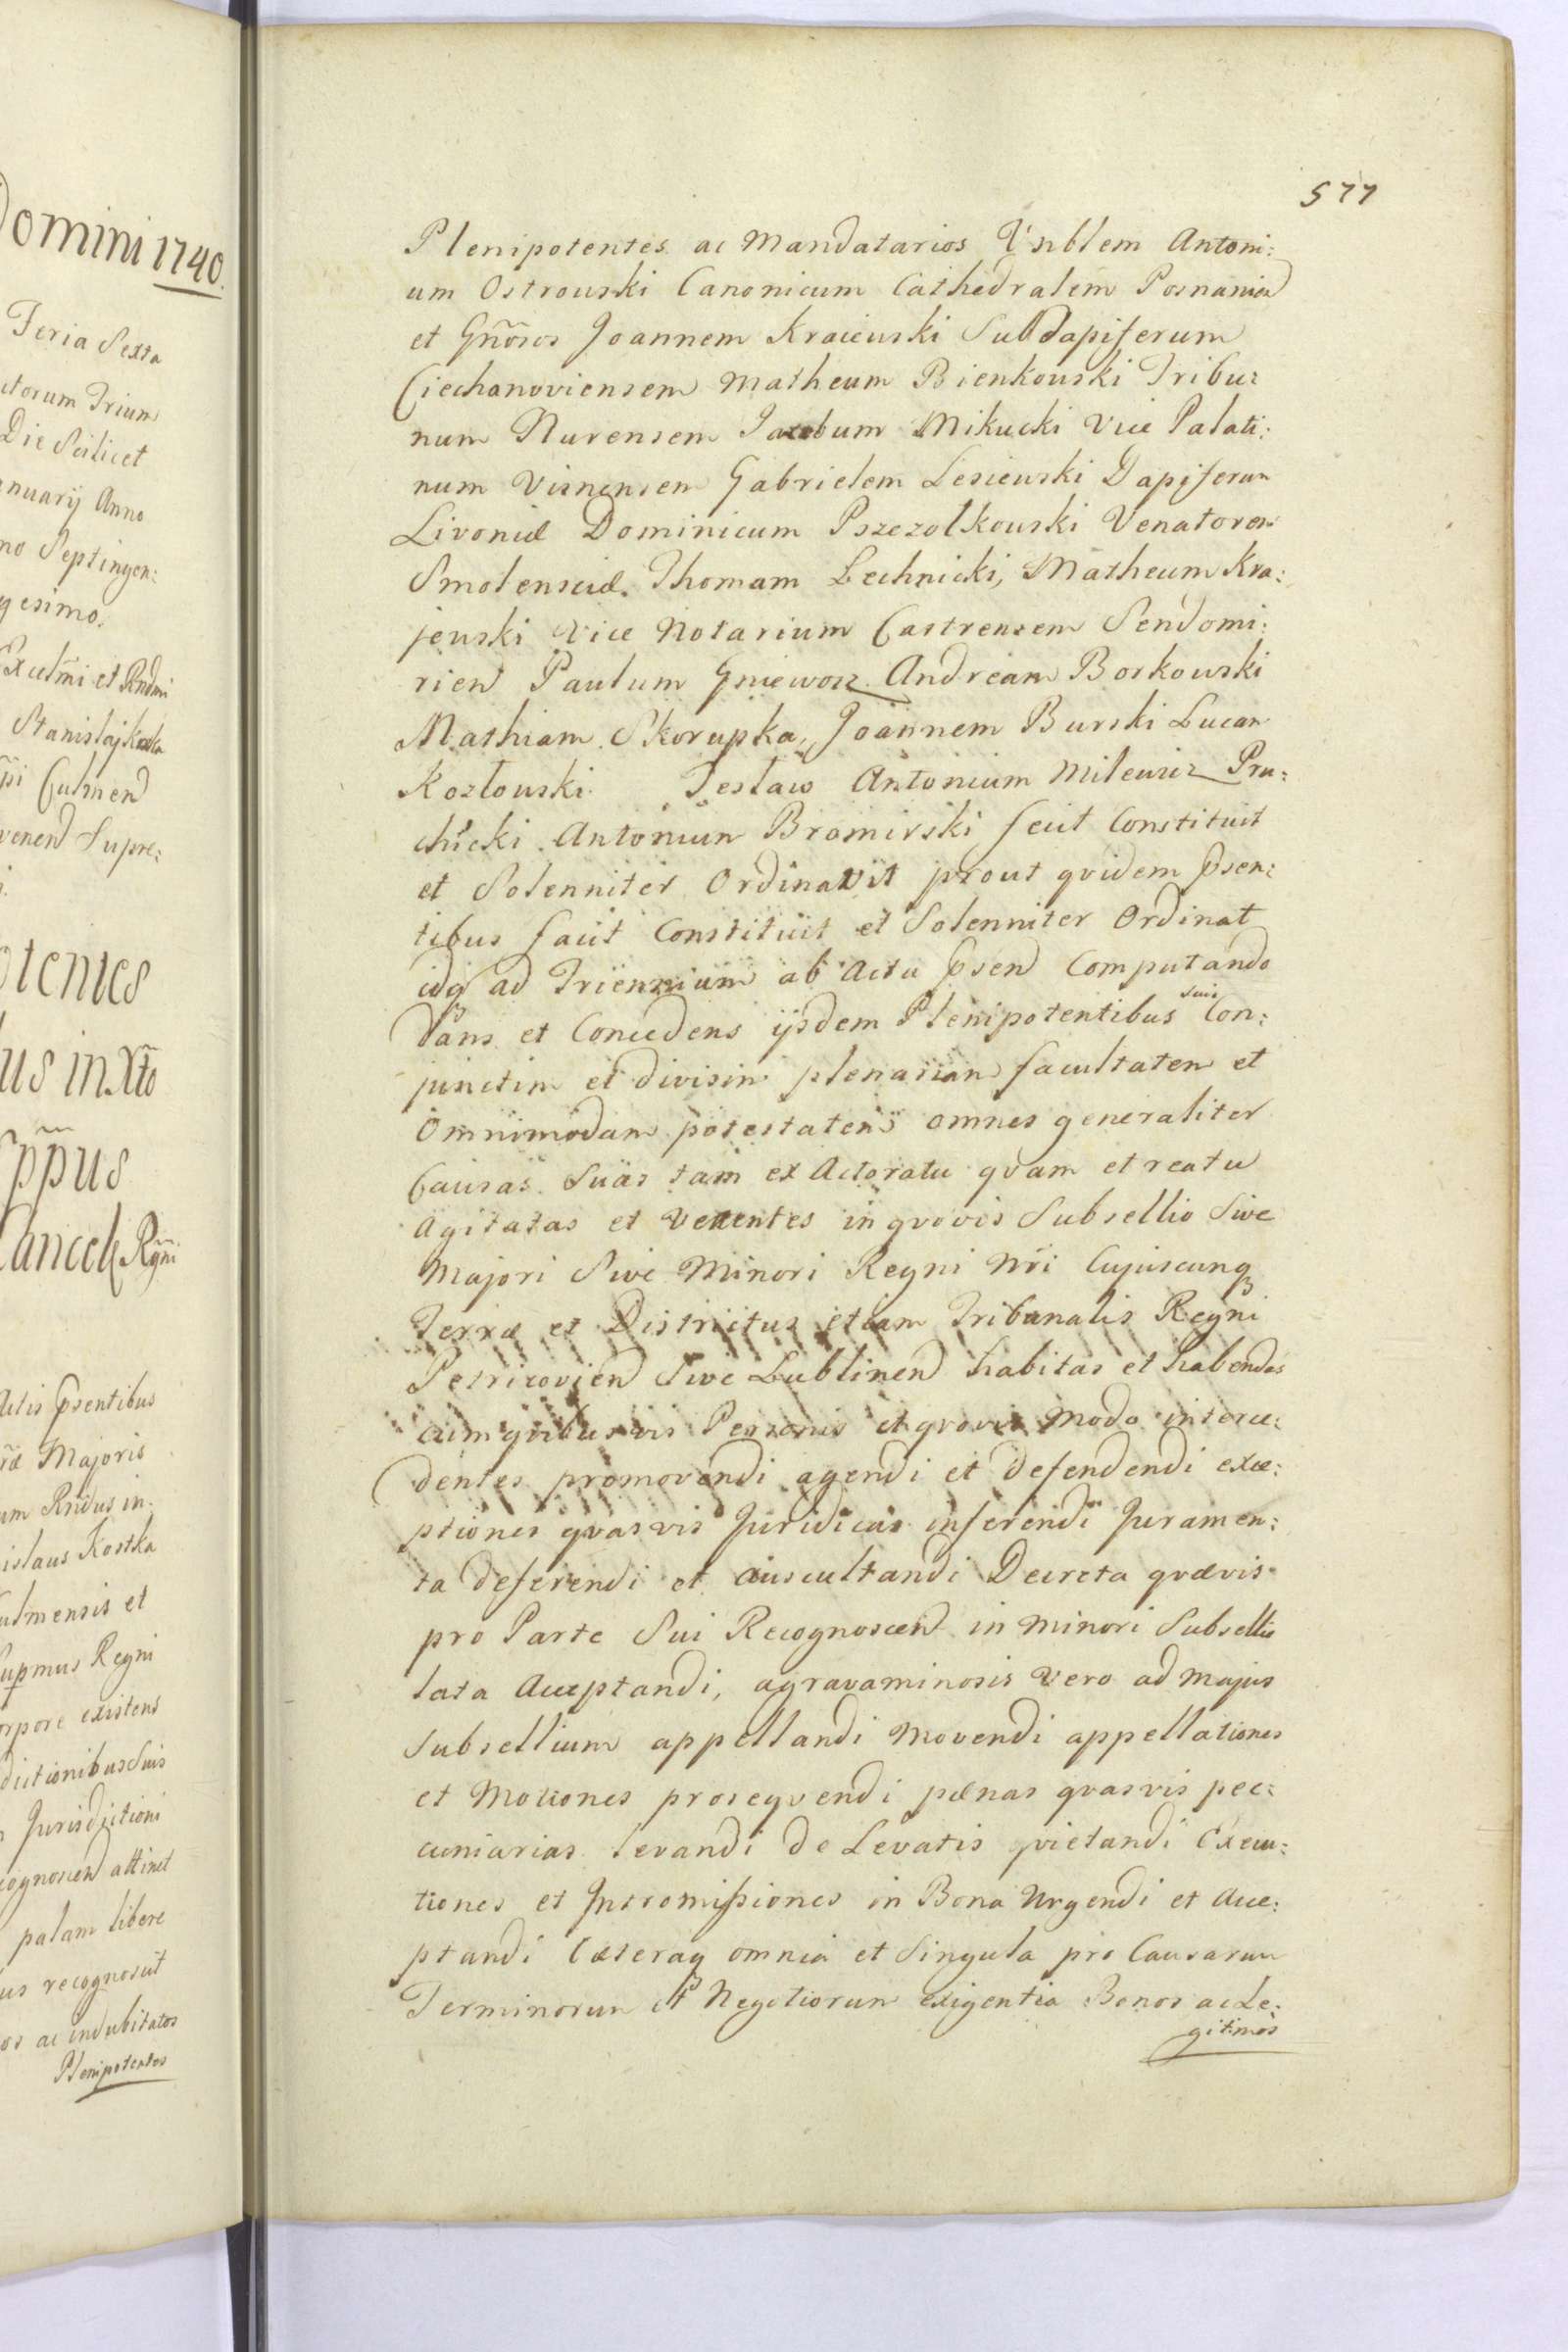 Domini 1740.
Feria Sexta
ctorum Trium
Die Scilicet
nuarij Anno
no Septingen:
gesimo.
Excelmi et Rndmi
Stanislaj Kostka
Culmen
venen Supre:
otentes
us in Xto
ppus
Cancell Rgni
Actis psentibus
Majoris
um Rndus in
islaus Kostka
ulmensis et
Supmus Regni
orpore existens
dictionibus Suis
Jurisdictioni
cognoscen attinet
palam libere
us recognoscit
os ac indubitatos
Plenipotentes
577
Plenipotentes ac Mandatarios Vnblem Antoni:
um Ostrowski Canonicum Cathedralem Posnanien
et Gnosos Joannem Kraiewski Subdapiferum
Ciechanoviensem Matheum Bienkowski Tribu:
num Nurensem Jacobum Mikucki Vice Palati:
num Visnensem Gabrielem Lesiewski Dapiferum
Livoniæ Dominicum Pszczolkowski Venatorem
Smolensciæ. Thomam Lechnicki, Matheum Kra:
jewski Vice Notarium Castrensem Sendomi:
rien Paulum Gniewosz Andream Borkowski
Mathiam Skorupka, Joannem Burski Lucam
Kozłowski Jesław Antonium Milewicz Pru:
chicki Antonium Bromirski fecit Constituit
et Solenniter Ordinavit prout qvidem psen:
tibus facit Constituit et Solenniter Ordinat
idq ad Triennium ab Actu psen Computando
Dans et Concedens ijsdem Plenipotentibus suis Con:
junctim et divisim plenariam facultatem et
Omnimodam potestatem omnes generaliter
Causas Suas tam ex Actoratu qvam et reatu
Agitatas et Vertentes in qvovis Subsellio Sive
Majori Sive Minori Regni Nri Cujuscunq
Terræ et Districtus etiam Tribunalis Regni
Petricovien Sive Lublinen habitas et habendas
cum qvibusvis Personis et qvovis Modo interce:
dentes promovendi agendi et defendendi exce:
ptiones qvasvis Juridicas inferendi Juramen:
ta deferendi et auscultandi Decreta qvævis
pro Parte Sui Recognoscen in Minori Subsellio
lata Acceptandi, agravaminosis Vero ad Majus
Subsellium appellandi Movendi appellationes
et Motiones proseqvendi pænas qvasvis pec:
cuniarias levandi de Levatis qvietandi Execu:
tiones et Intromissiones in Bona Urgendi et Acce:
ptandi Cæteraq omnia et Singula pro Causarum
Terminorum et Negotiorum exigentia Bonos ac Le:
gitimos